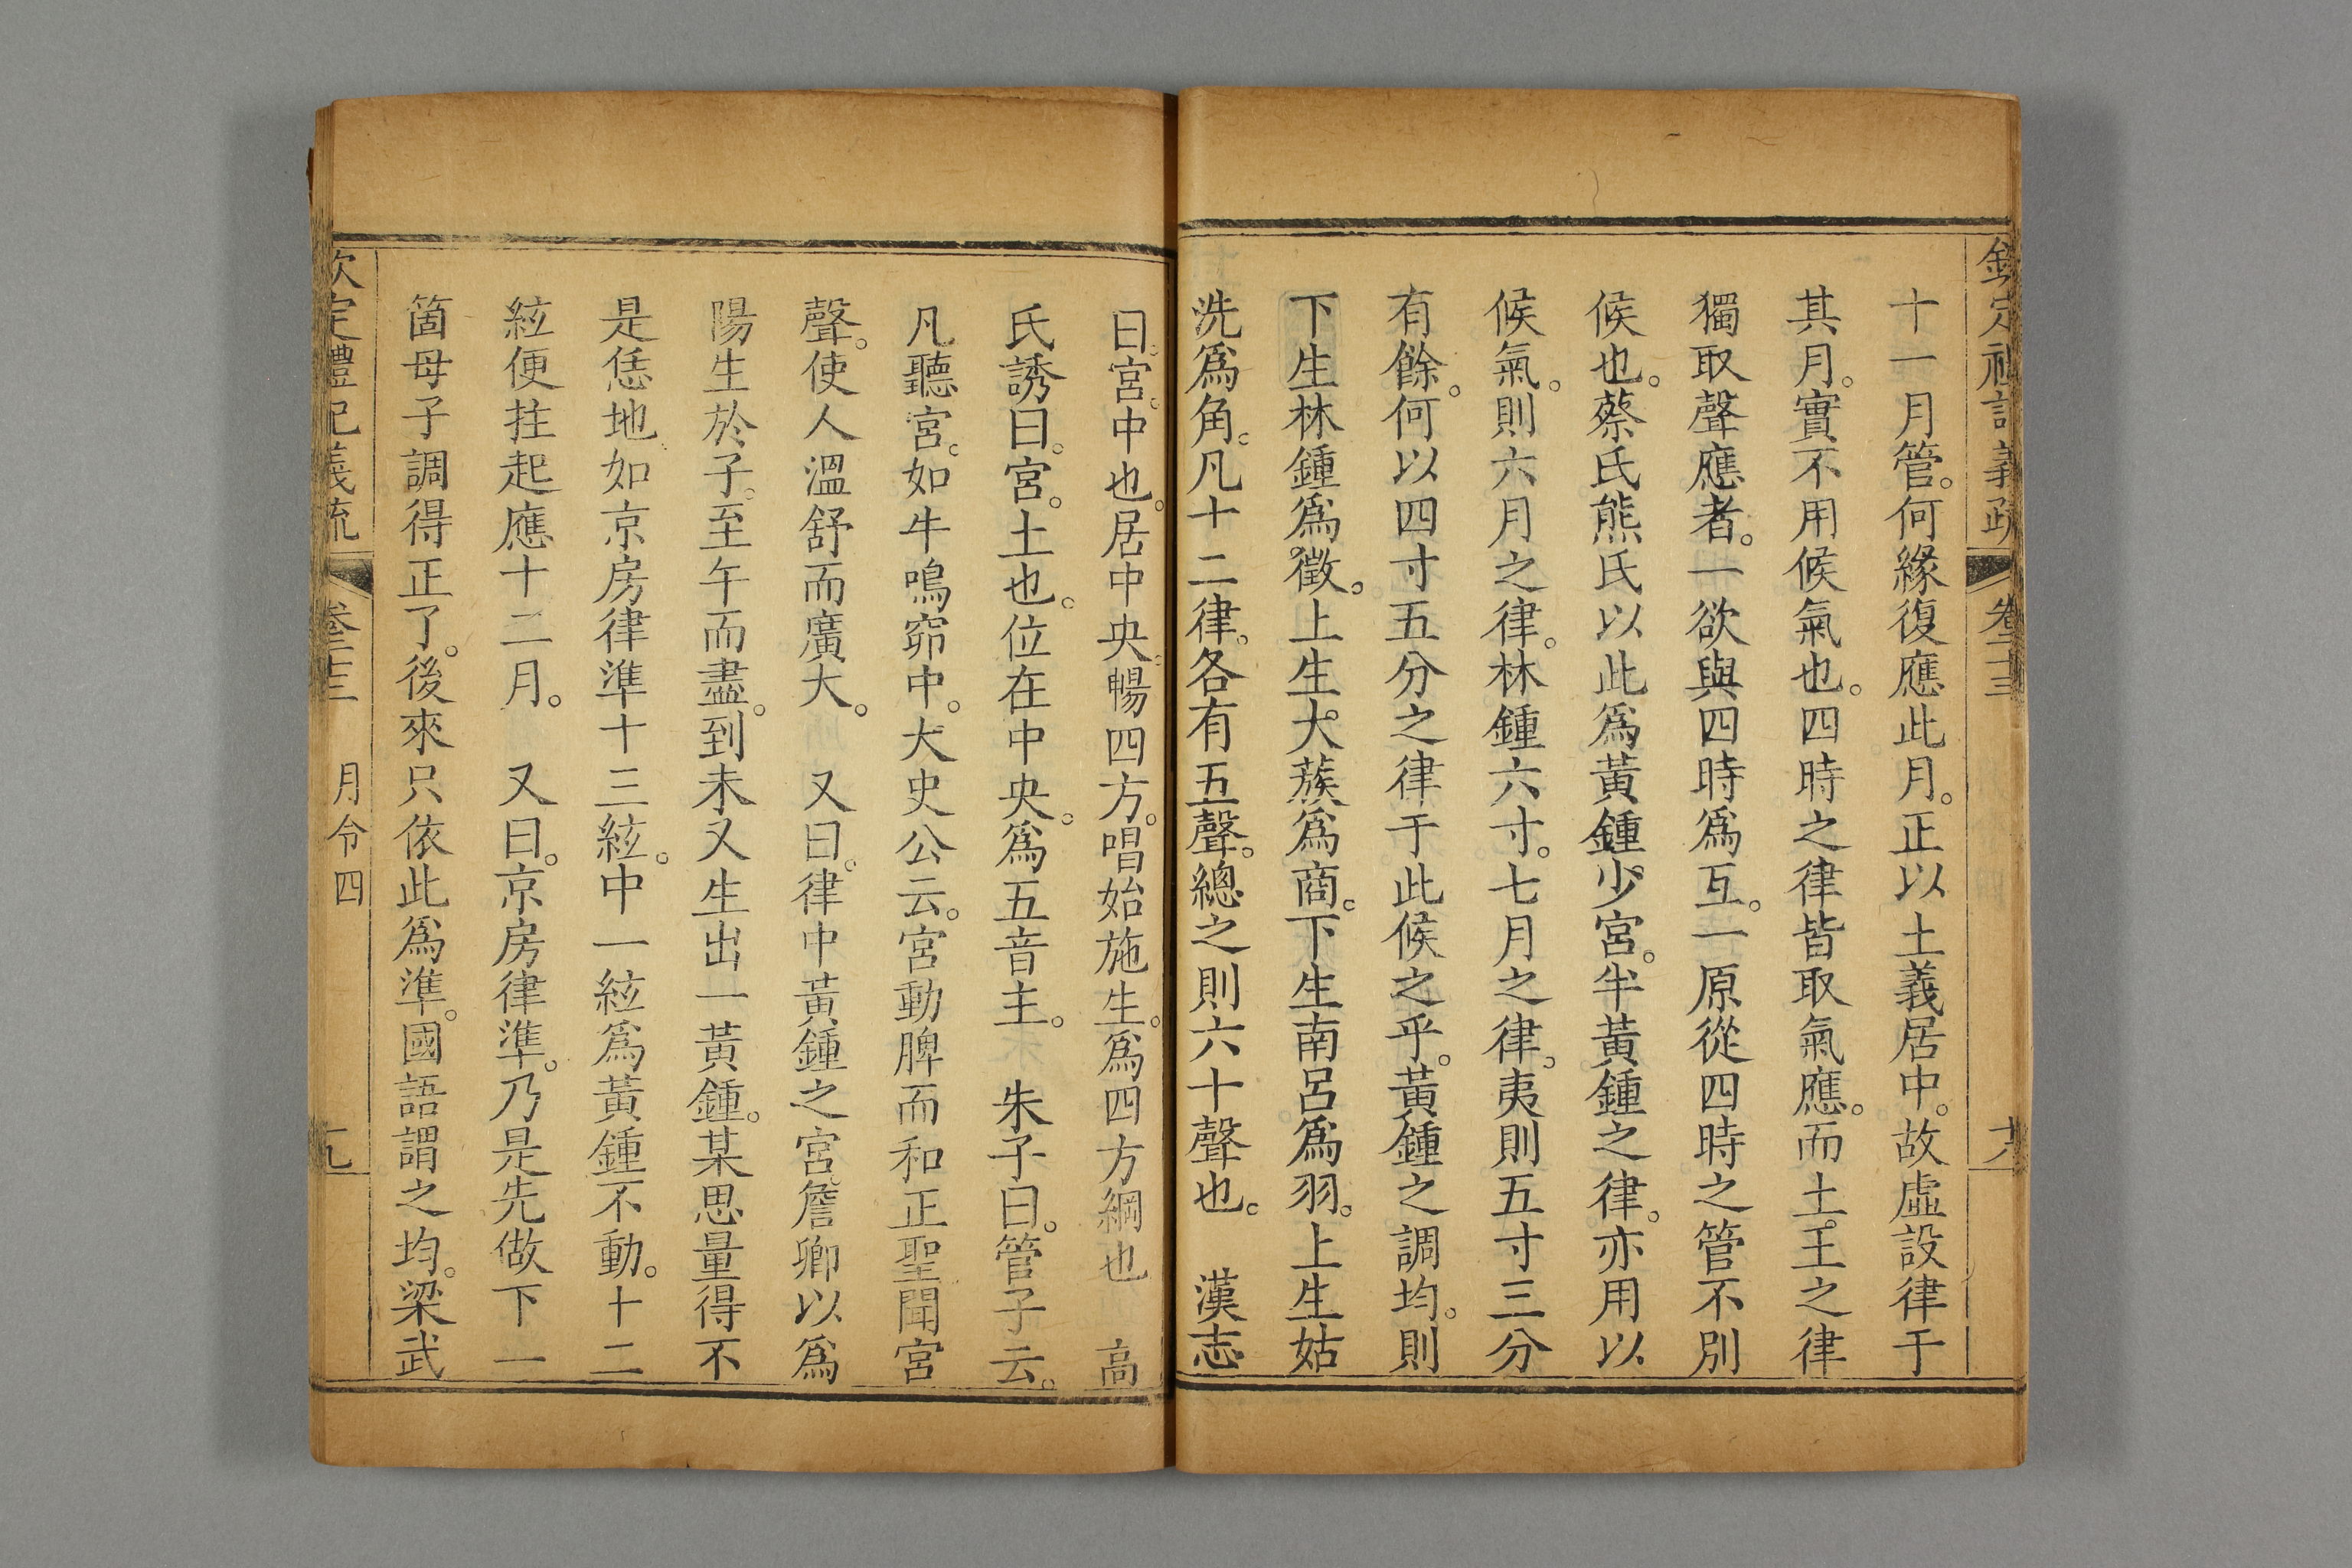 欽定禮記義疏 卷二十三 十八
十一月管。何緣復應此月。正以土義居中。故虛設律于
其月。實不用候氣也。四時之律皆取氣應。而土王之律
獨取聲應者。一欲與四時爲互。一原從四時之管不別
候也。蔡氏熊氏以此爲黃鍾少宮。半黃鍾之律。亦用以
候氣。則六月之律。林鍾六寸。七月之律。夷則五寸三分
有餘。何以四寸五分之律于此候之乎。黃鍾之調均。則
下生林鍾爲徵。上生大蔟爲商。下生南呂爲羽。上生姑
洗爲角。凡十二律。各有五聲。總之則六十聲也。 漢志
曰。宮。中也。居中央。暢四方。唱始施生。爲四方綱也 高
氏誘曰。宮。土也。位在中央。爲五音主。 朱子曰。管子云。
凡聽宮。如牛鳴窌中。大史公云。宮動脾而和正聖聞宮
聲。使人溫舒而廣大。 又曰。律中黃鍾之宮。詹卿以爲
陽生於子。至午而盡。到未又生出一黃鍾。某思量得不
是恁地。如京房律準十三絃。中一絃爲黃鍾不動。十二
絃便拄起應十二月。 又曰。京房律準。乃是先做下一
箇母子調得正了。後來只依此爲準。國語謂之均。梁武
欽定禮記義疏 卷二十三 月令四